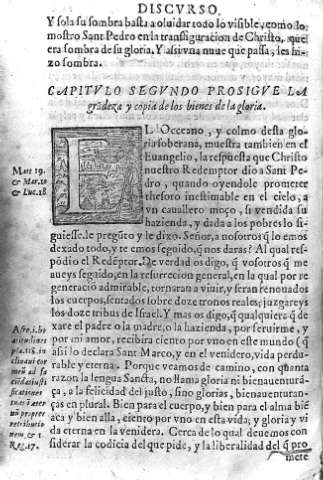 DISCVRSO.
Y sola su sombra basta a oluidar todo lo visible, como lo
mostro Sant Pedro en la transfiguracion de Christo, que
era sombra de su gloria. Y assi vna nuue que passa, les hi-
zo sombra.
CAPITVLO SEGVNDO PROSIGVE LA
grãdeza y copia de los bienes de la gloria.
EL Occeano, y colmo desta glo-
ria soberana, muestra tambien en el
Euangelio, la respuesta que Christo
nuestro Redemptor dio a Sant Pe-
dro, quando oyendole prometer
thesoro inestimable en el cielo, a
vn cauallero moço, si vendida su
hazienda, y dada a los pobres lo si-
guiesse. le pregũto y le dixo. Señor, a nosotros q̃ lo emos
dexado todo, y te emos seguido, q̃ nos daras? Al qual res-
põdio el Redẽptor. De verdad os digo, q̃ vosotros q̃ me
aueys seguido, en la resurrecion general, en la qual por re-
generació admirable, tornaran a viuir, y seran renouados
los cuerpos, sentados sobre doze tronos reales, juzgareys
los doze tribus de Israel. Y mas os digo, q̃ qualquiera q̃ de
xare el padre o la madre, o la hazienda, por seruirme, y
por mi amor, recibira ciento por vno en este mundo (q̃
assi lo declara Sant Marco, y en el venidero, vida perdu-
rable y eterna. Porque veamos de camino, con quanta
razon la lengua Sancta, no llama gloria ni bienauenturã-
ça, a la felicidad del justo, sino glorias, bienauenturan-
ças en plural. Bien para el cuerpo, y bien para el alma biẽ
aca y bien alla, ciento por vno en esta vida; y gloria y vi
da eterna en la venidera. Cerca de lo qual deuemos con-
siderar la codicia del que pide, y la liberalidad del q̃ pro
mete
Matt 19.
& Mar. 10
& Luc. 18.